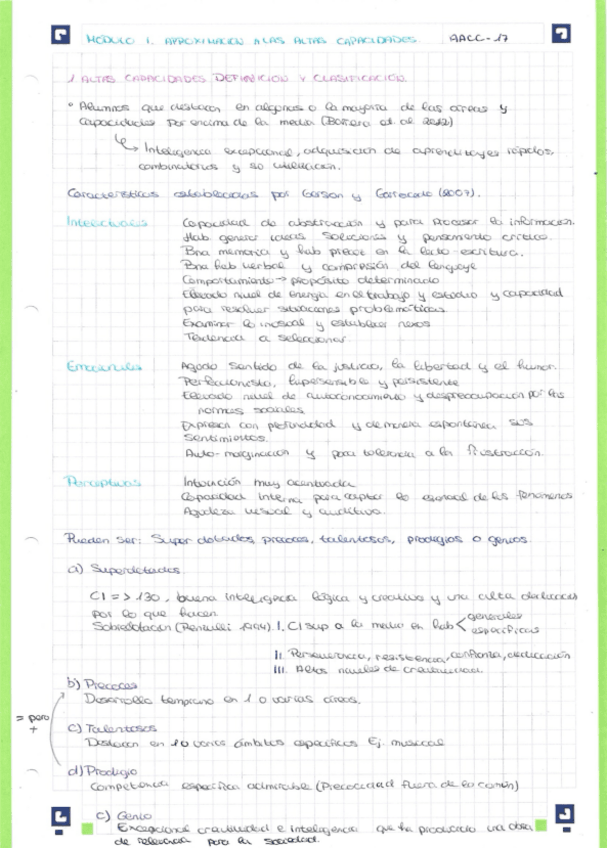 MODULO 1. APROXIMACION A LAS ALTAS CAPACIDADES. AACC-17
1 ALTAS CAPACIDADES DEFINICION Y CLASIFICACIÓN
• Alumnos que destacan en algunas o la mayoría de las áreas y
capacidades por encima de la media (Borrera et al. 2002)
Inteligencia excepcional, adquisición de aprendizajes rápidos,
combinatorios y su utilización.
Características establecidas por Gerson y (2007).
Intelectuales Capacidad de abstracción y para procesar la información.
Hab. generar ideas soluciones y pensamiento crítico.
Bna memoria y hab precoz en la lecto-escritura.
Bna hab verbal y compresión del lenguaje
Comportamiento → propósito determinado
Elevado nivel de energía en el trabajo y estudio y capacidad
para resolver situaciones problemáticas.
Examinar lo inusual y establecer nexos
Tendencia a seleccionar
Emocionales Agudo sentido de la justicia, la libertad y el humor.
Perfeccionista, hipersensible y persistente
Elevado nivel de autoconocimiento y despreocupación por las
normas sociales
Expresan con profundidad y de manera espontánea sus
sentimientos.
Auto-marginación y poca tolerancia a la frustración.
Perceptivas Intuición muy acentuada
Capacidad interna para captar lo esencial de los fenómenos
Agudeza visual y auditiva.
Pueden ser: Superdotados, precoces, talentosos, prodigios o genios.
a) Superdotados
CI = > 130, buena inteligencia lógica y creativa y una alta dedicación
por lo que hacen
Sobredotación (Renzulli 1994) I. CI sup a la media en hab < generales
específicas
II. Perseverancia, resistencia, confianza, dedicación
III. Altos niveles de creatividad
b) Precoces
Desarrollo temprano en 1 o varias áreas.
= pero
+
c) Talentosos
Destacan en 1 o varios ámbitos específicos Ej. musical
d) Prodigio
Competencia específica admirable (Precocidad fuera de lo común)
c) Genio
Excepcional creatividad e inteligencia que ha producido una obra
de relevancia para la sociedad.